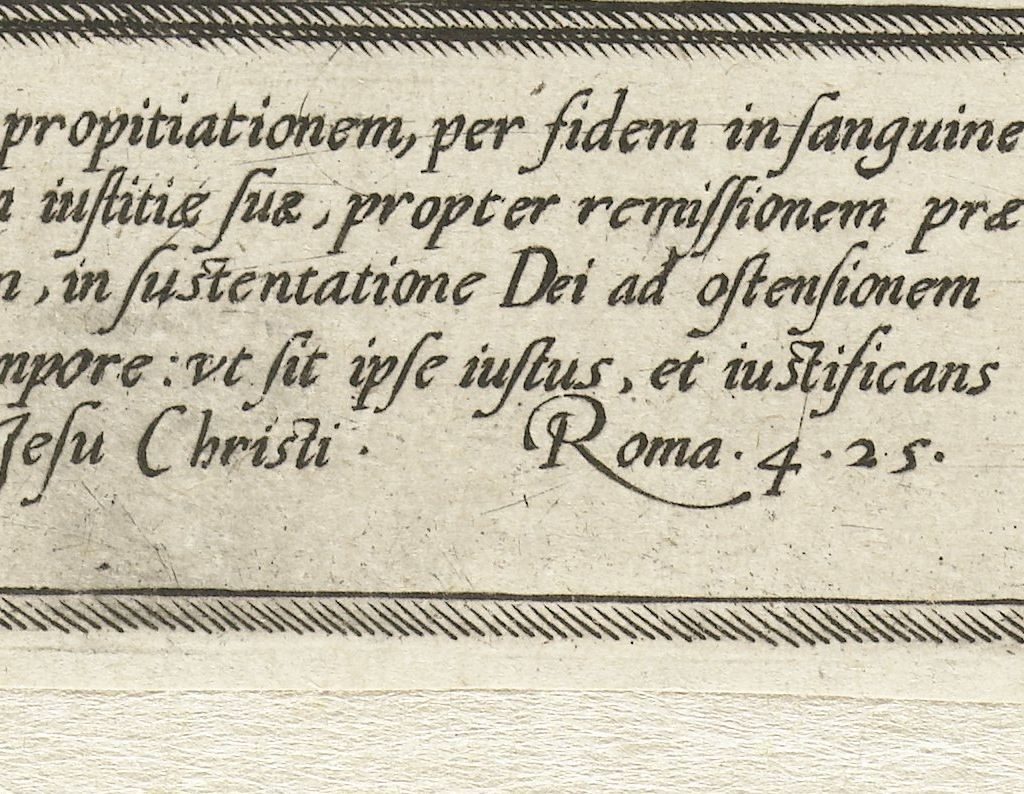 propitiationem, per fidem in ſanguine
iuſtitiæ ſuæ, propter remiſſionem præ
, in ſuſtentatione Dei ad oſtenſionem
mpore: vt ſit ipſe iuſtus, et iuſtificans
Jeſu Chriſti. Roma. 4. 25.